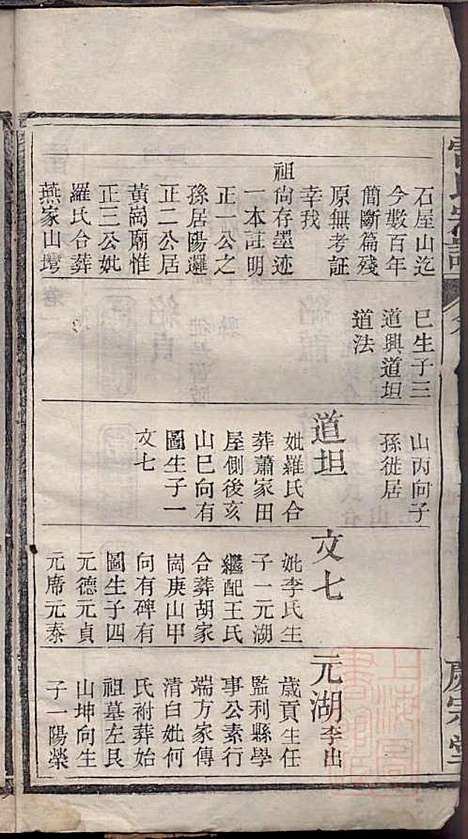 石屋山迄
今數百年
簡斷篇殘
原無考証
幸我
祖尚存墨迹
一本註明
正一公之
孫居陽邏
正二公居
黃崗廟惟
正三公妣
羅氏合葬
燕家山塆
巳生子三
道興道坦
道法
山丙向子
孫徙居
道坦
妣羅氏合
葬蕭家田
屋側後亥
山巳向有
圖生子一
文七
文七
妣李氏生
子一元湖
繼配王氏
合葬胡家
崗庚山甲
向有碑有
圖生子四
元德元貞
元席元泰
元湖李出
歲貢生任
監利縣學
事公素行
端方家傳
清白妣何
氏祔葬始
祖墓左艮
山坤向生
子一陽榮